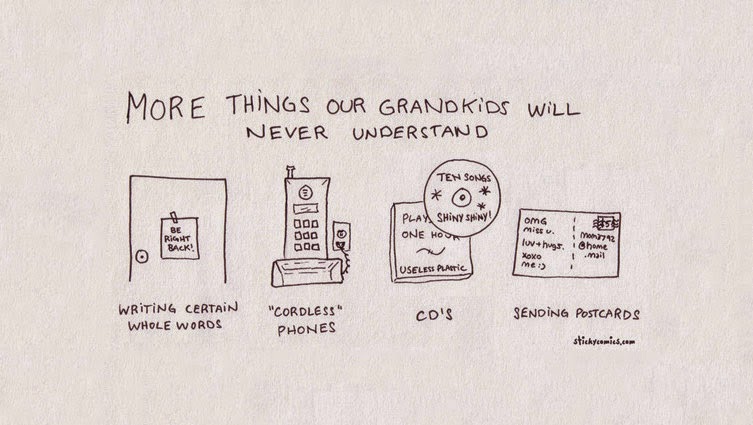 MORE THINGS OUR GRANDKIDS WILL
NEVER UNDERSTAND
BE
RIGHT
BACK!
WRITING CERTAIN
WHOLE WORDS
"CORDLESS"
PHONES
TEN SONGS
SHINY SHINY!
PLAY
ONE HOUR
USELESS PLASTIC
CD'S
OMG
miss u.
luv+hugs.
xoxo
me :)
mom2792
@home
.mail
SENDING POSTCARDS
stickycomics.com